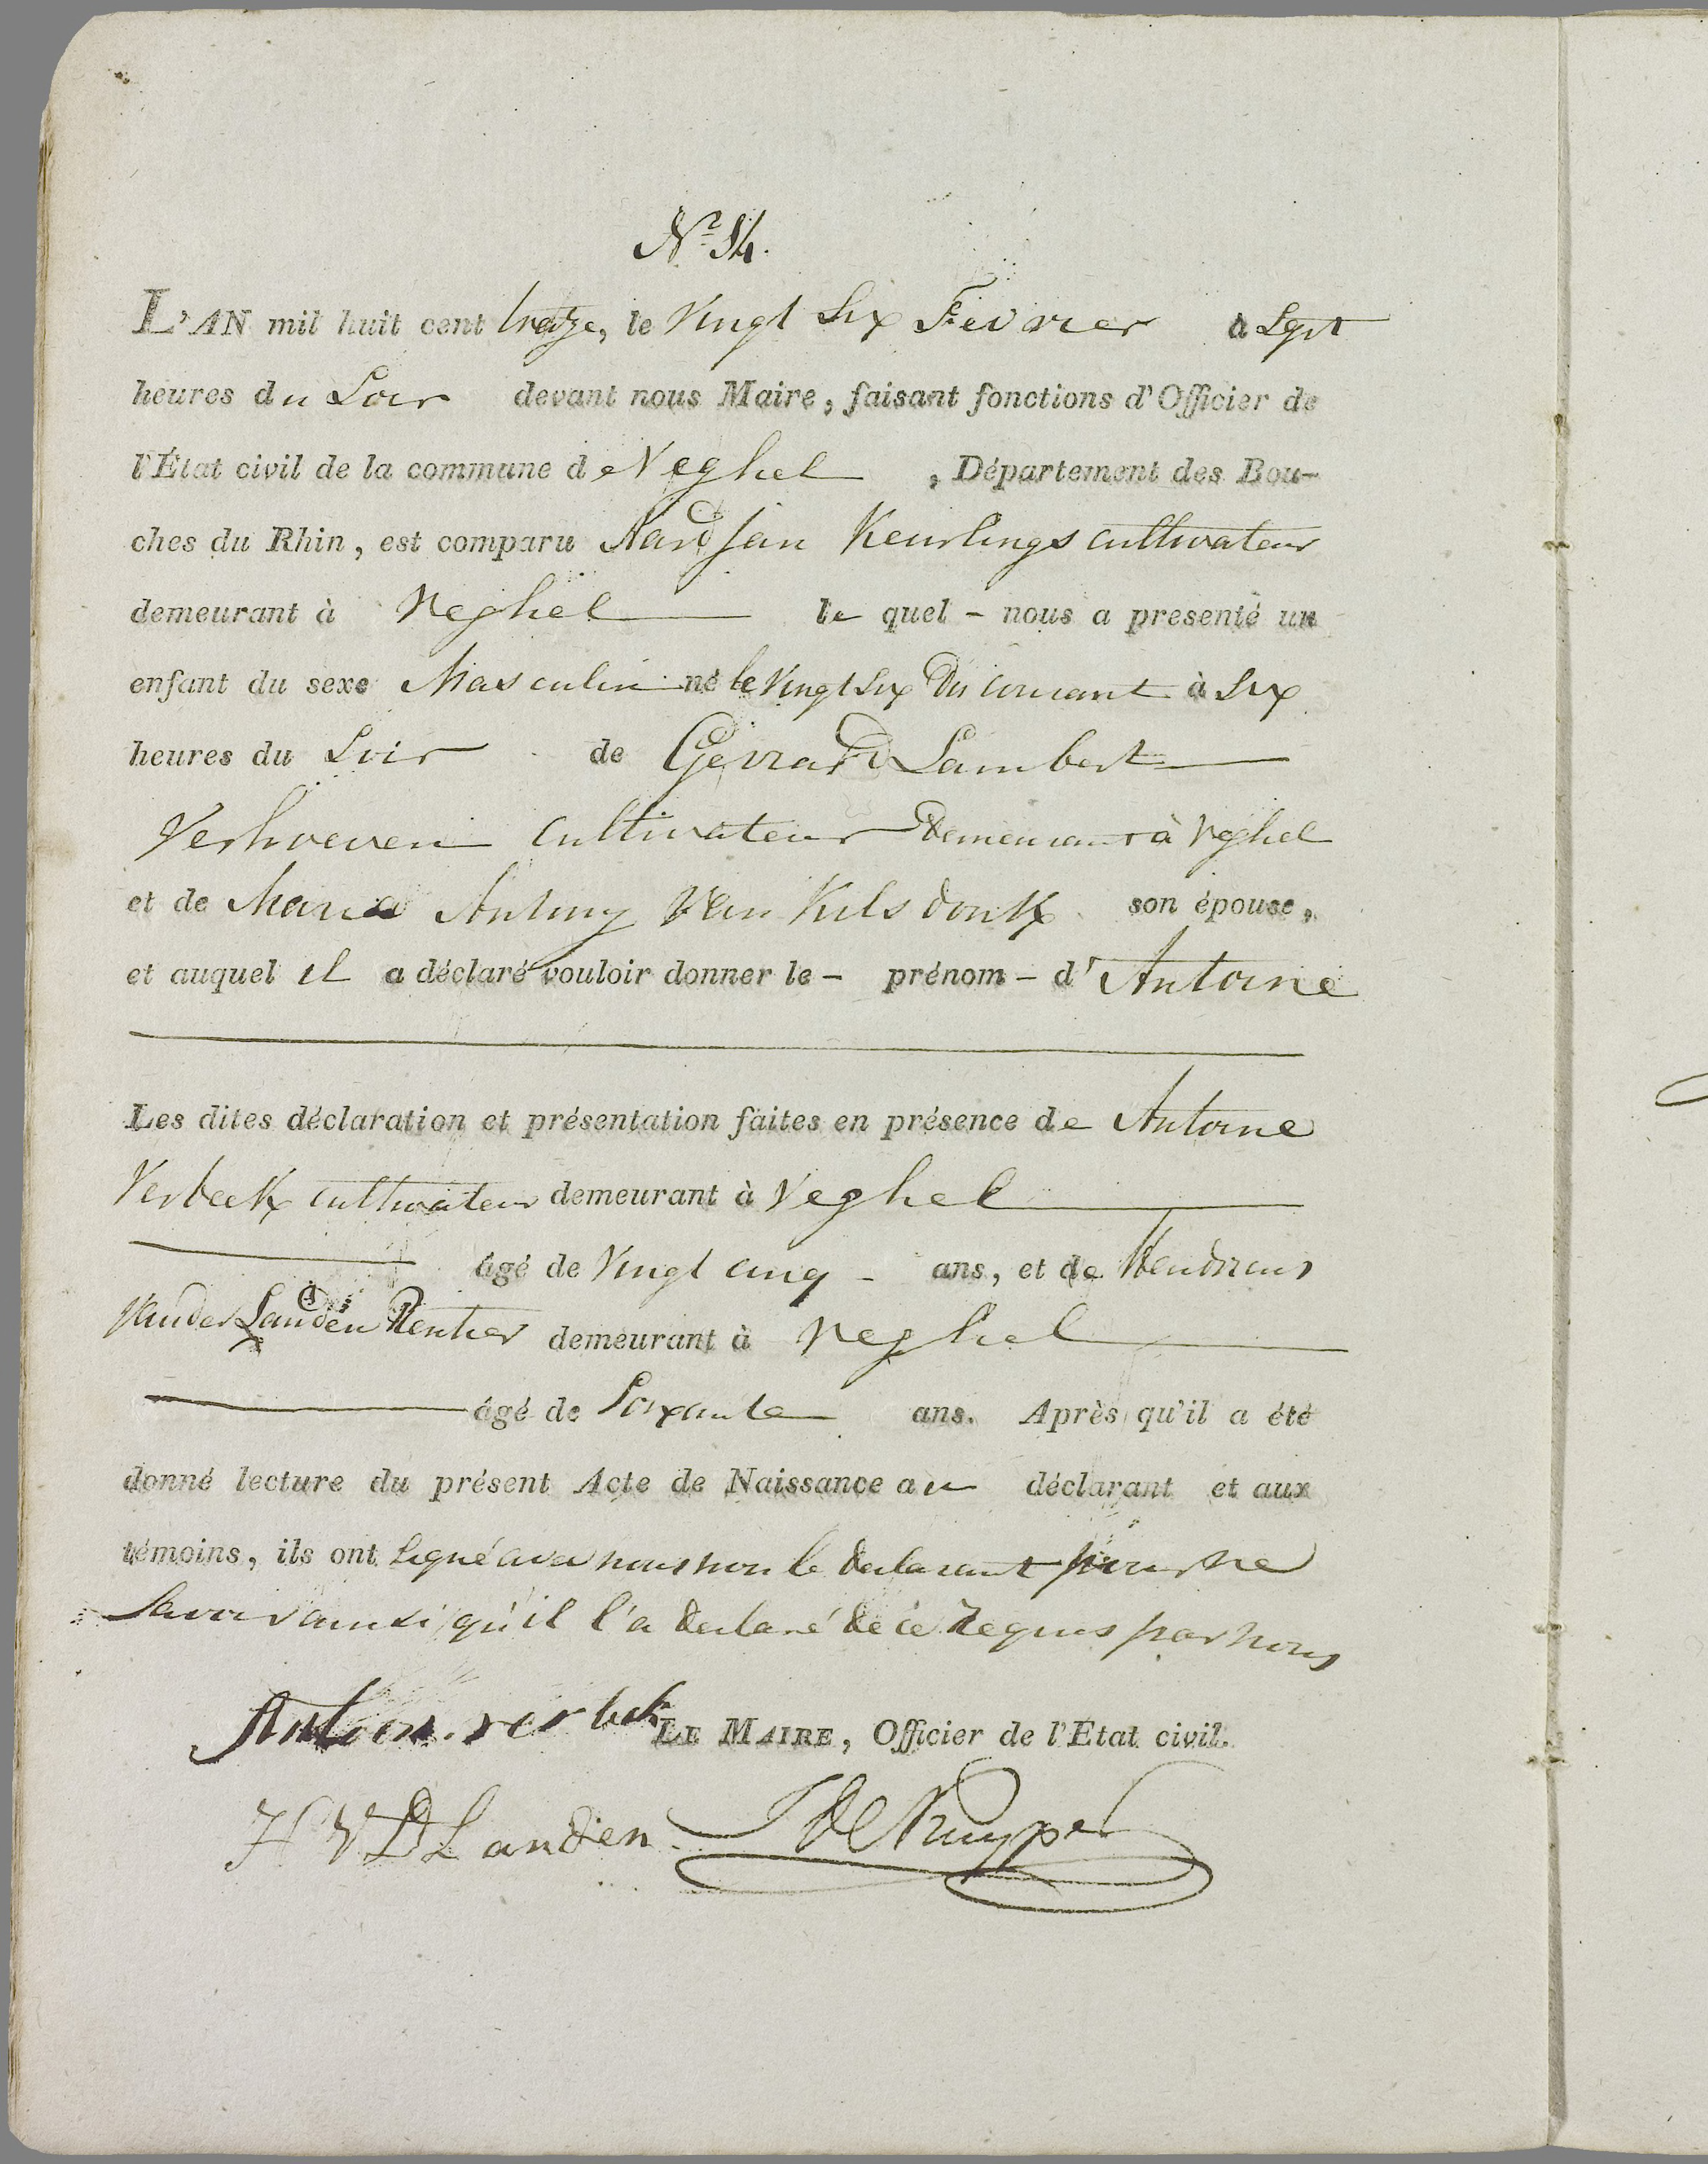 No 14.
L'AN mil huit cent treize, le Vingt Six Fevrier à Sept
heures du Soir devant nous Maire, faisant fonctions d'Officier de
l'État civil de la commune de Veghel, Département des Bou-
ches du Rhin, est comparu Nard Jan Keurlings cultivateur
demeurant à Veghel le quel - nous a presenté un
enfant du sexe Masculin né le Vingt Six du courant à Six
heures du Soir de Gerrard Lambert
Verhoeven Cultivateur demeurant à Veghel
et de Maria Antony Van Kilsdonk son épouse,
et auquel il a déclaré vouloir donner le - prénom - d'Antoine
Les dites déclaration et présentation faites en présence de Antoine
Verbeek cultivateur demeurant à Veghel
âgé de Vingt cinq - ans, et de Hendricus
Vander Landen Rentier demeurant à Veghel
âgé de Soixante ans. Après qu'il a été
donné lecture du présent Acte de Naissance au déclarant et aux
témoins, ils ont signé avec nous non le declarant pour ne
Savoir ainsi qu'il l'a declaré de ce requis par nous
Antoni verbek LE MAIRE, Officier de l'État civil.
H V D Landen de Kuyper